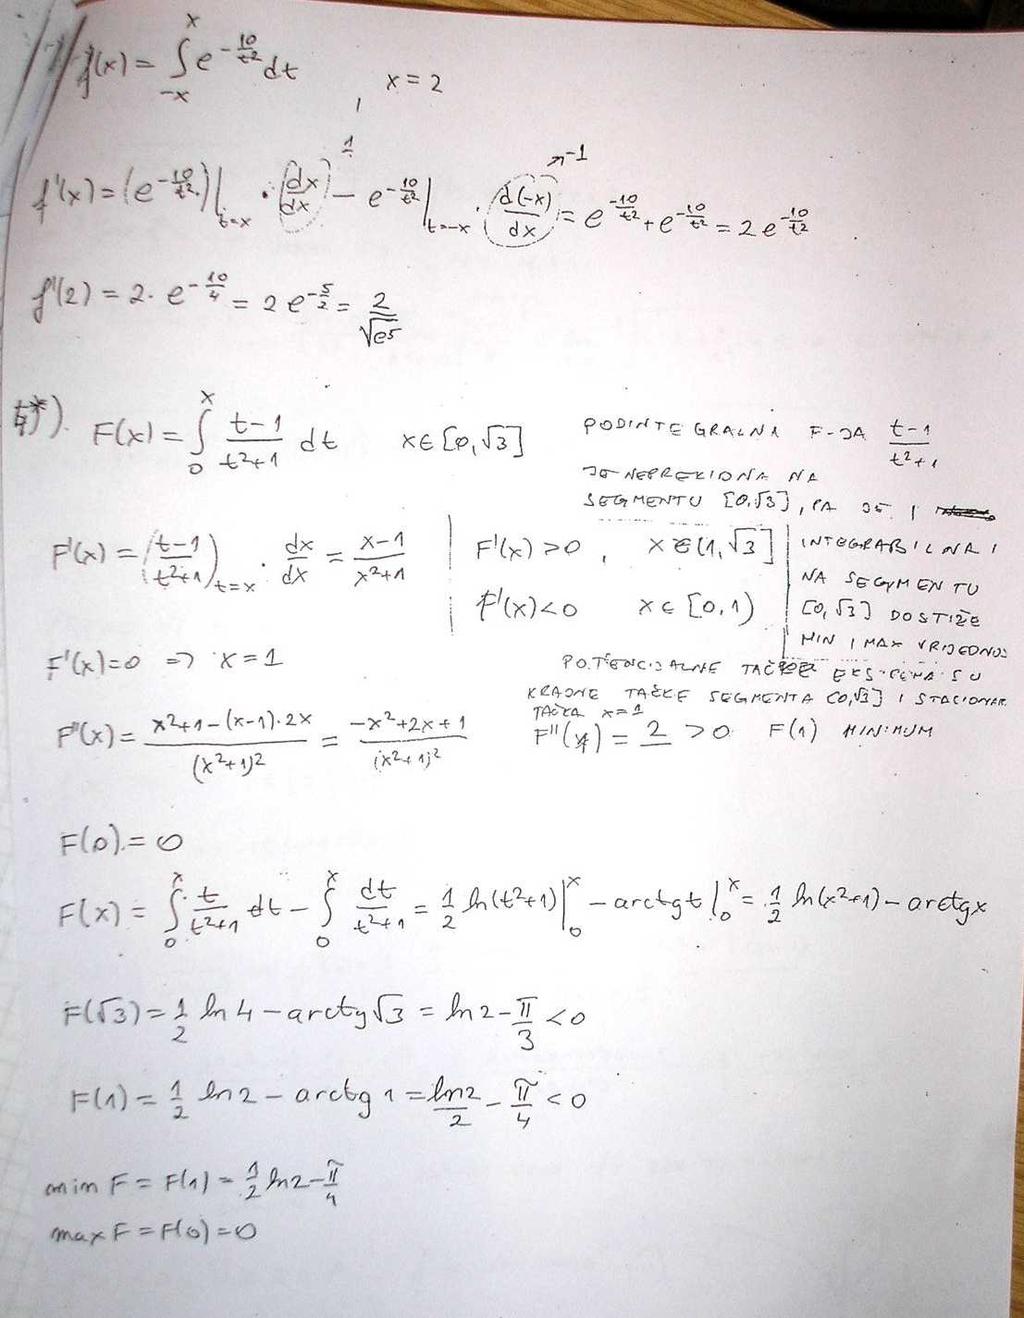 f(x) = ∫_{-x}^{x} e^{-10/t²} dt , x = 2
f'(x) = (e^{-10/t²})|_{t=x} · (dx/dx) ↗1 − e^{-10/t²}|_{t=-x} · (d(-x)/dx) ↗-1 = e^{-10/t²} + e^{-10/t²} = 2e^{-10/t²}
f'(2) = 2 · e^{-10/4} = 2e^{-5/2} = 2/√e⁵
F(x) = ∫_0^x (t-1)/(t²+1) dt x∈[0,√3]
PODINTEGRALNA F-JA (t-1)/(t²+1)
JE NEPREKIDNA NA
SEGMENTU [0,√3], PA JE I
INTEGRABILNA I
NA SEGMENTU
[0,√3] DOSTIŽE
MIN I MAX VRIJEDNOS
F'(x) = ((t-1)/(t²+1))_{t=x} · dx/dx = (x-1)/(x²+1)
F'(x) > 0 , x∈(1,√3]
F'(x) < 0 x∈[0,1)
F'(x)=0 => x=1
POTENCIJALNE TAČKE EKSTREMA SU
KRAJNE TAČKE SEGMENTA [0,√3] I STACIONAR.
TAČKA x=1
F''(x) = (x²+1-(x-1)·2x)/(x²+1)² = (-x²+2x+1)/(x²+1)²
F''(1) = 2 > 0 F(1) MINIMUM
F(0) = 0
F(x) = ∫_0^x t/(t²+1) dt − ∫_0^x dt/(t²+1) = 1/2 ln(t²+1)|_0^x − arctgt|_0^x = 1/2 ln(x²+1) − arctgx
F(√3) = 1/2 ln4 − arctg√3 = ln2 − π/3 < 0
F(1) = 1/2 ln2 − arctg1 = ln2/2 − π/4 < 0
min F = F(1) = 1/2 ln2 − π/4
max F = F(0) = 0